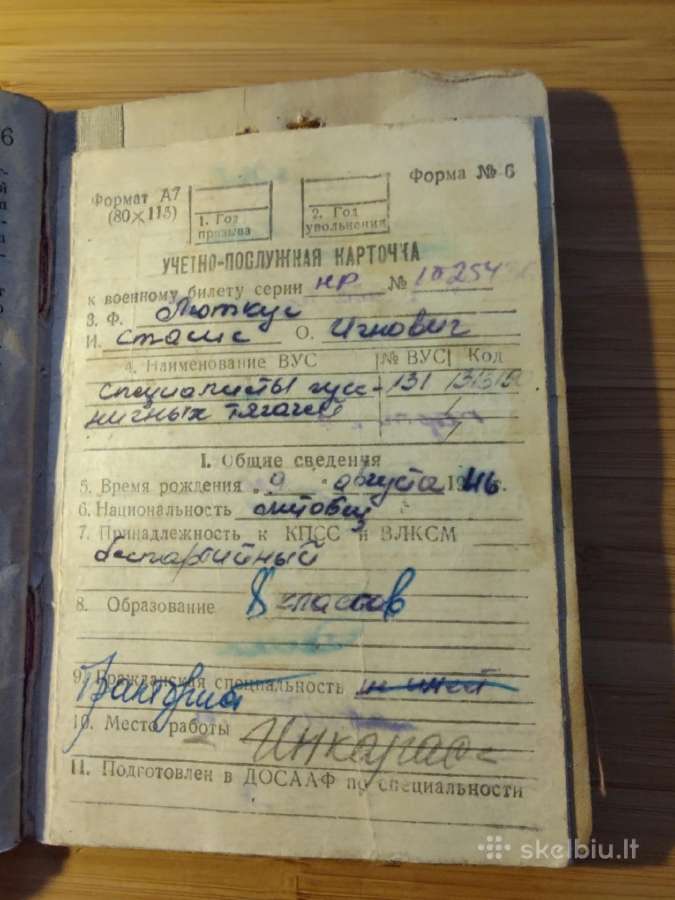 6
Формат А7
(80×113)
1. Год
призыва
2. Год
увольнения
Форма № 6
УЧЕТНО-ПОСЛУЖНАЯ КАРТОЧКА
к военному билету серии НР №
3. Ф. Люткус
И. Стасис О. Игнович
4. Наименование ВУС № ВУС Код
специалисты гусе- 131
ничных тягачей
I. Общие сведения
5. Время рождения „9 " августа 1946 г.
6. Национальность литовец
7. Принадлежность к КПСС и ВЛКСМ
беспартийный
8. Образование 8 классов
9. Гражданская специальность не имеет
Тракторист
10. Место работы
11. Подготовлен в ДОСААФ по специальности
skelbiu.lt